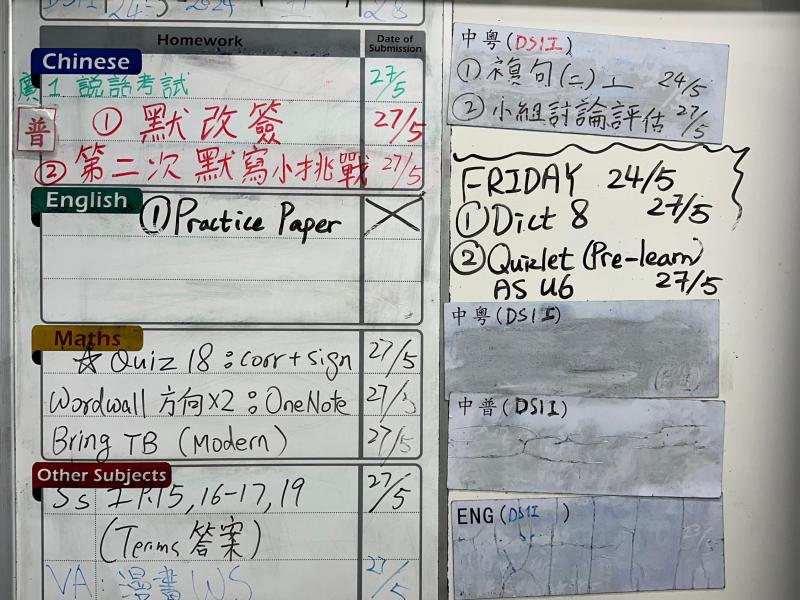 Homework
Date of Submission
Chinese
廣 1 説話考試 27/5
普
① 默改簽 27/5
② 第二次 默寫小挑戰 27/5
English
① Practice Paper
Maths
☆ Quiz 18 : corr + sign 27/5
Wordwall 方向 x2 : OneNote 27/5
Bring TB (Modern) 27/5
Other Subjects
Ss P.15, 16-17, 19 27/5
(Terms 答案)
VA: 漫畫 WS 27/5
中粵(DS1I)
① 句(二) 24/5
② 小組討論評估 27/5
FRIDAY 24/5
① Dict 8 27/5
② Quizlet (Pre-learn)
AS U6 27/5
中粵(DS1I)
中普(DS1I)
ENG(DS1I )